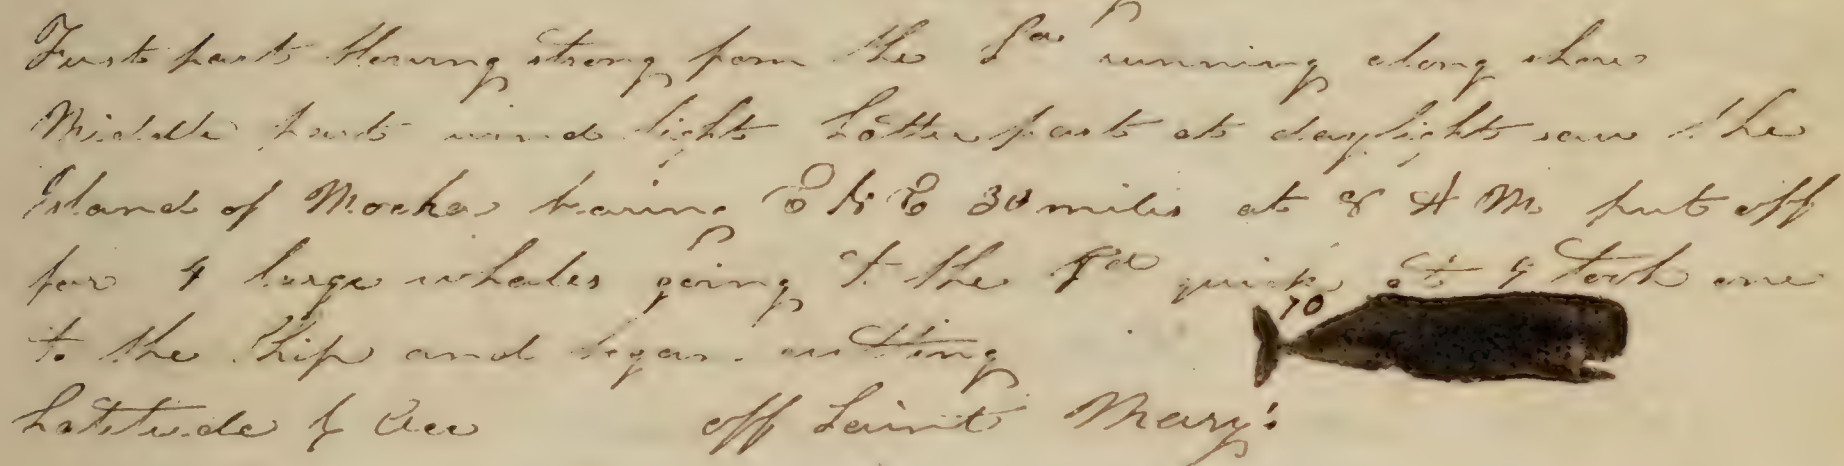 First part blowing strong from the Sd running along shore
Middle part wind light Latter part at daylight saw the
Island of Mocha bearing E b E 30 miles at 8 A M put off
for 4 large whales going to the Sd quick at 9 took one
70
to the Ship and began cutting
Latitude by Acc off Saint Mary's